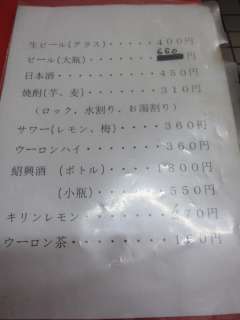 生ビール(グラス)・・・・・400円
ビール(大瓶)・・・・・・660円
日本酒・・・・・・・・・450円
焼酎(芋、麦)・・・・・・310円
(ロック、水割り、お湯割り)
サワー(レモン、梅)・・・・360円
ウーロンハイ・・・・・・・360円
紹興酒 (ボトル)・・・・1800円
(小瓶)・・・・・550円
キリンレモン・・・・・・
ウーロン茶・・・・・・・